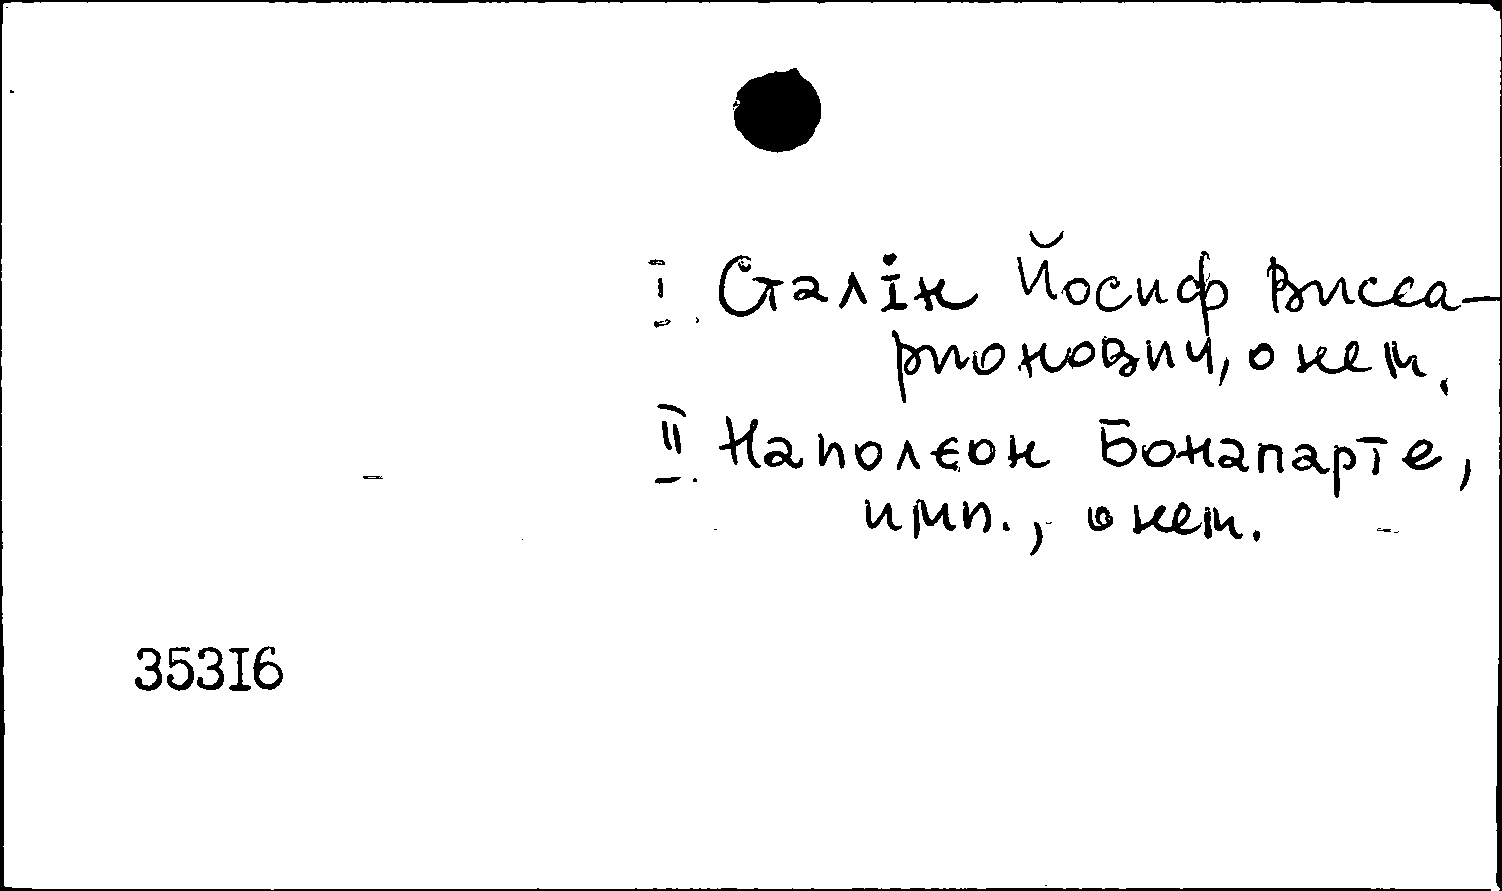 I. Сталін Йосиф Висса-
рионович, о нем.
II. Наполєон Бонапарте,
имп., о нем.
353I6